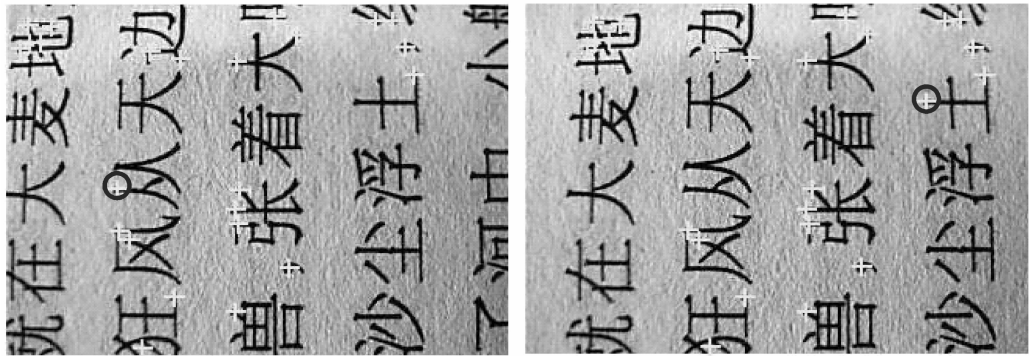 就在大麦地
狂风从天边
兽，张着大
沙尘浮土，
就在大麦地
狂风从天边
兽，张着大
沙尘浮土，